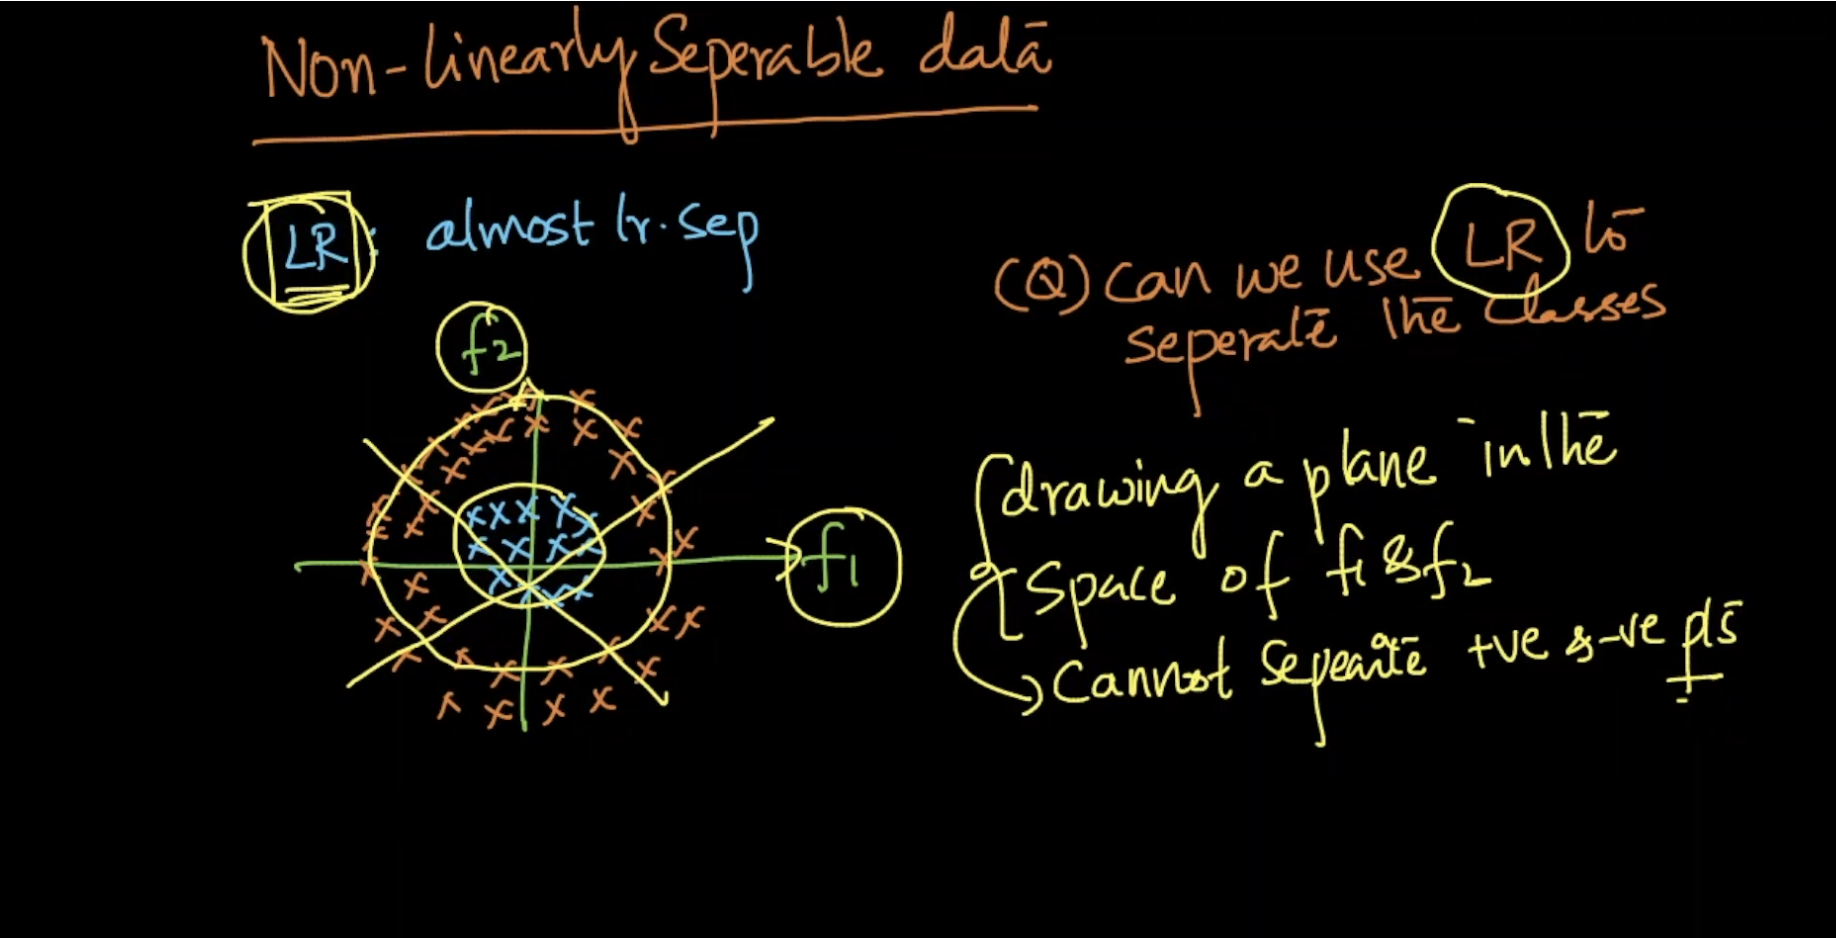 Non-linearly Seperable data
LR: almost lr. sep
(Q) Can we use LR to
seperate the classes
f2
f1
drawing a plane in the
space of f1 & f2
Cannot sepearate +ve & -ve pts